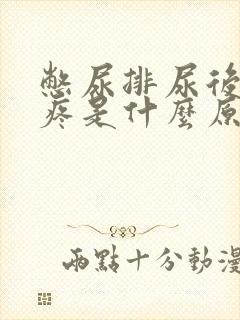 憋尿排尿後
疼是什麼原
兩點十分動漫